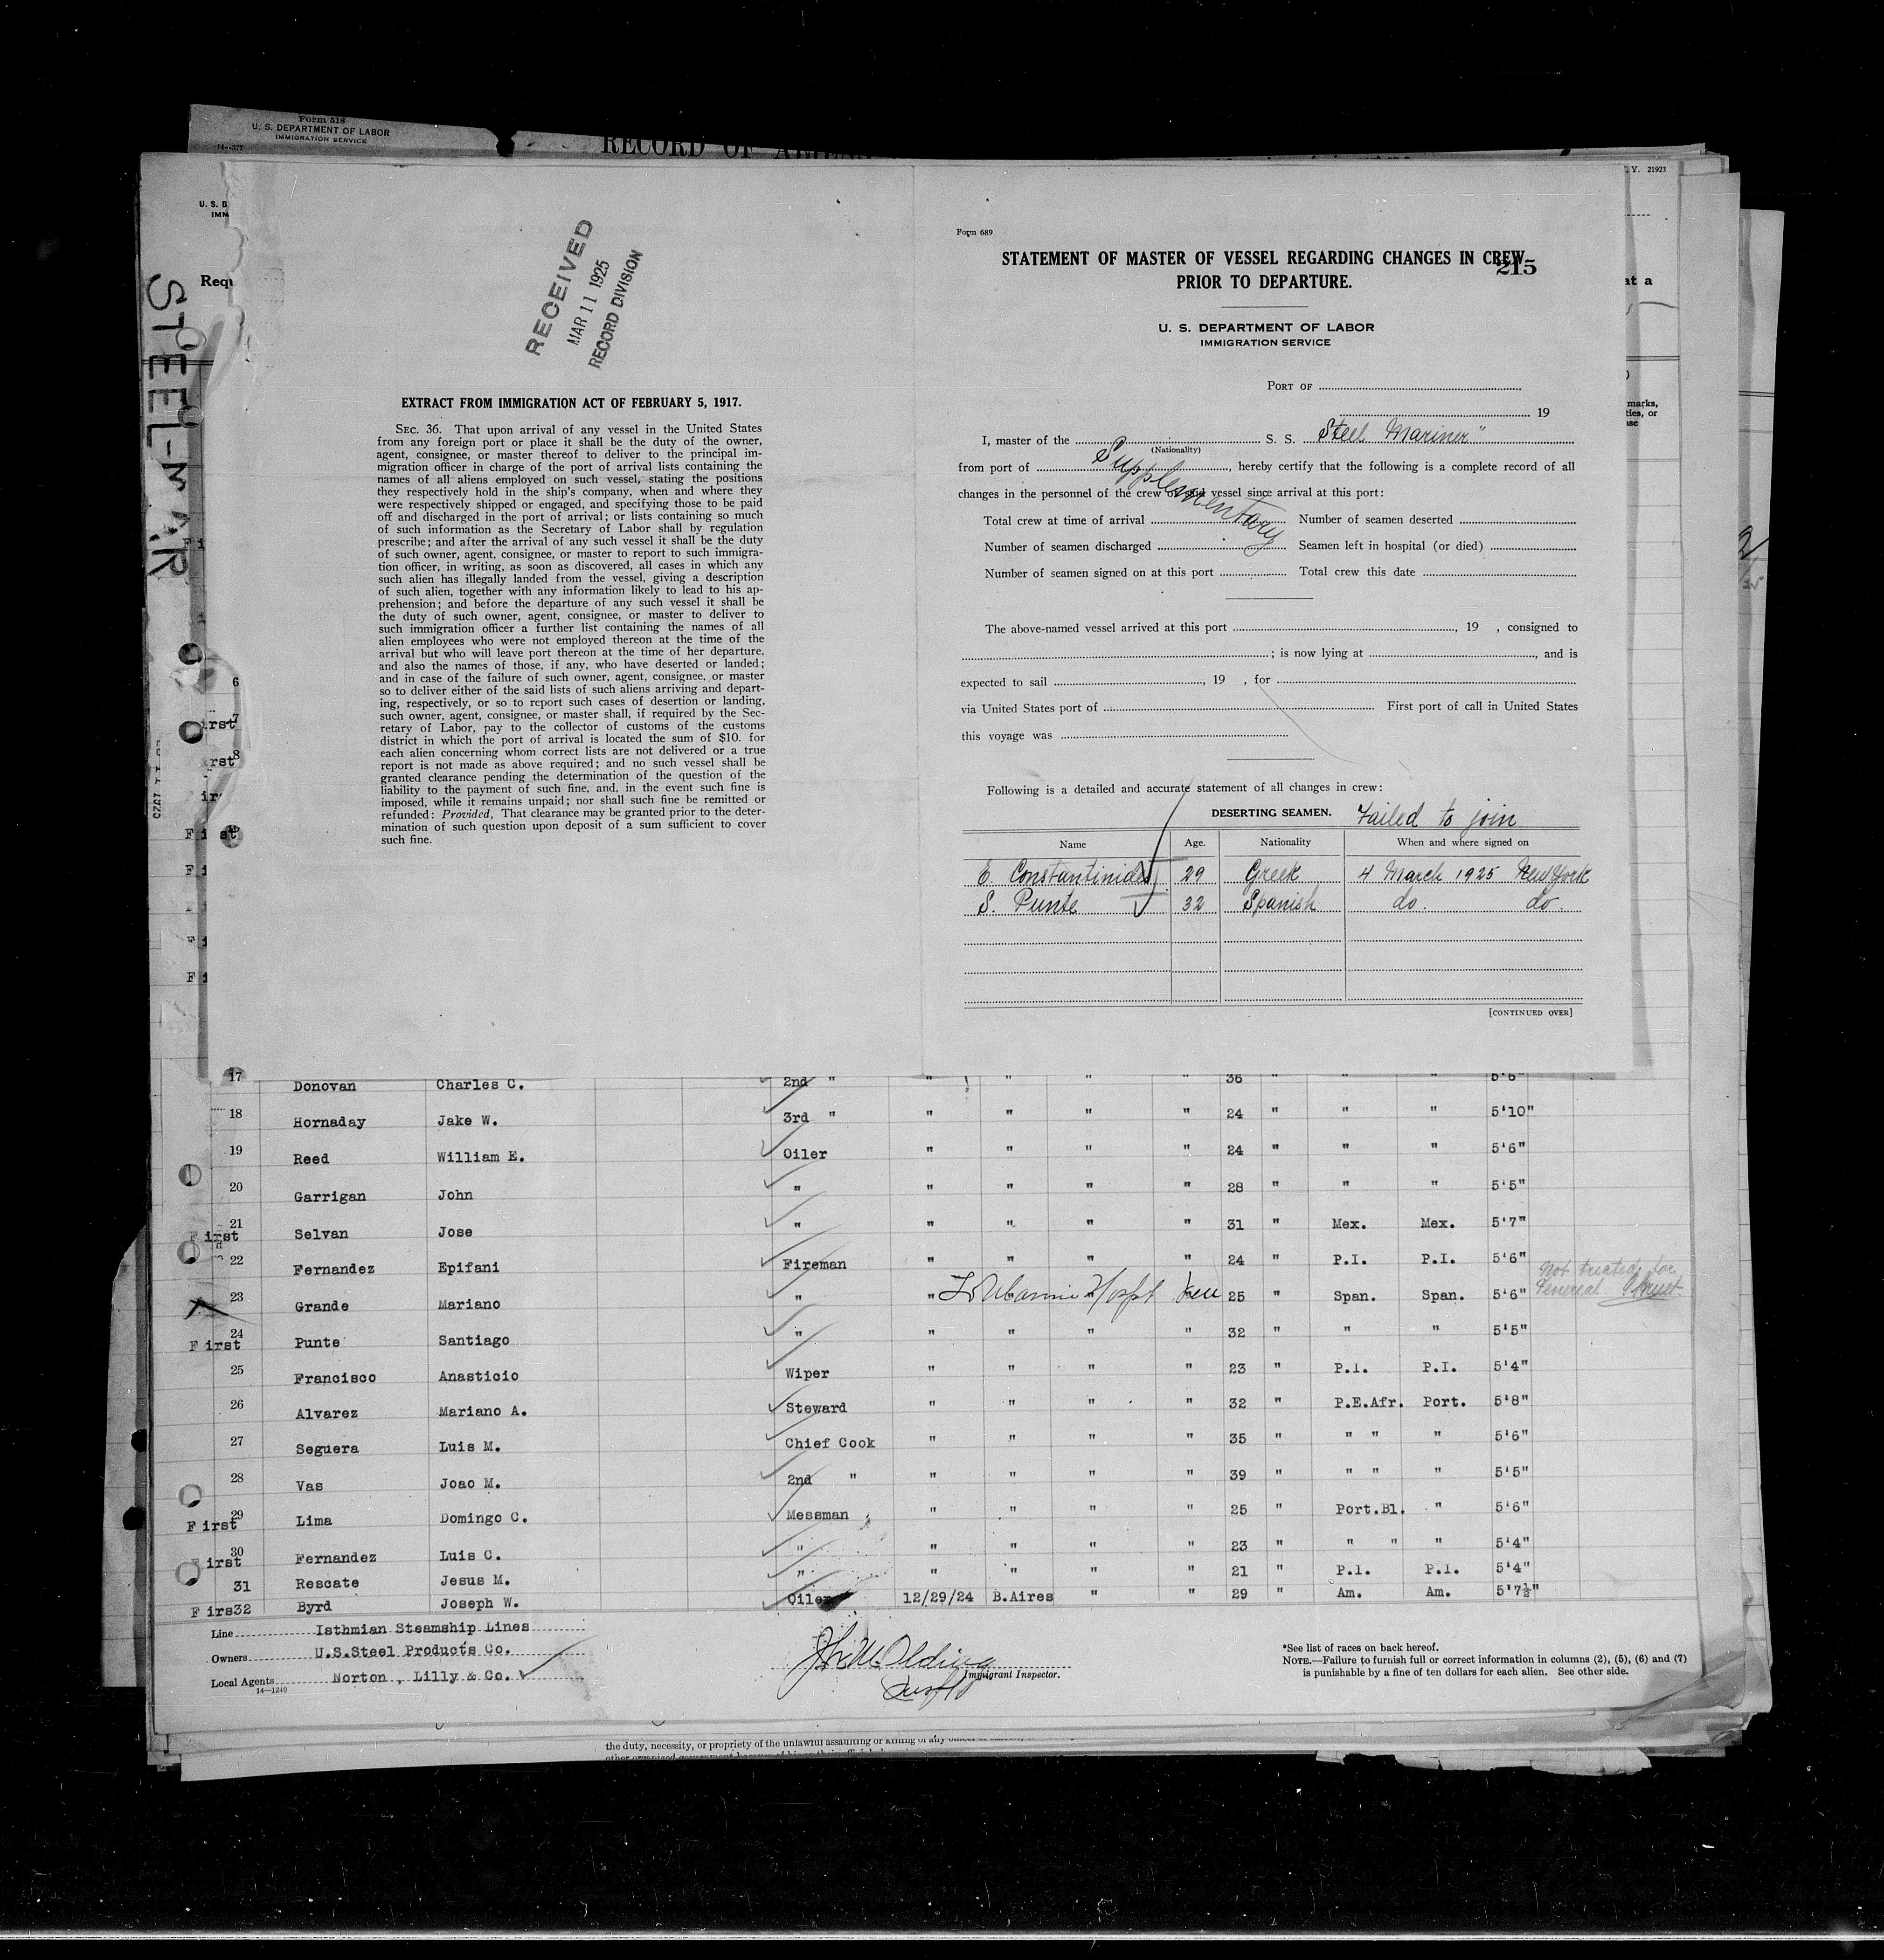 Form 518
U. S. DEPARTMENT OF LABOR
IMMIGRATION SERVICE
RECORD OF
Y. 21923
U. S. D
IMM
Requ
at a
marks,
ties, or
STEEL-MAR
RECEIVED
MAR 11 1925
RECORD DIVISION
EXTRACT FROM IMMIGRATION ACT OF FEBRUARY 5, 1917.
SEC. 36. That upon arrival of any vessel in the United States
from any foreign port or place it shall be the duty of the owner,
agent, consignee, or master thereof to deliver to the principal im-
migration officer in charge of the port of arrival lists containing the
names of all aliens employed on such vessel, stating the positions
they respectively hold in the ship's company, when and where they
were respectively shipped or engaged, and specifying those to be paid
off and discharged in the port of arrival; or lists containing so much
of such information as the Secretary of Labor shall by regulation
prescribe; and after the arrival of any such vessel it shall be the duty
of such owner, agent, consignee, or master to report to such immigra-
tion officer, in writing, as soon as discovered, all cases in which any
such alien has illegally landed from the vessel, giving a description
of such alien, together with any information likely to lead to his ap-
prehension; and before the departure of any such vessel it shall be
the duty of such owner, agent, consignee, or master to deliver to
such immigration officer a further list containing the names of all
alien employees who were not employed thereon at the time of the
arrival but who will leave port thereon at the time of her departure,
and also the names of those, if any, who have deserted or landed;
and in case of the failure of such owner, agent, consignee, or master
so to deliver either of the said lists of such aliens arriving and depart-
ing, respectively, or so to report such cases of desertion or landing,
such owner, agent, consignee, or master shall, if required by the Sec-
retary of Labor, pay to the collector of customs of the customs
district in which the port of arrival is located the sum of $10. for
each alien concerning whom correct lists are not delivered or a true
report is not made as above required; and no such vessel shall be
granted clearance pending the determination of the question of the
liability to the payment of such fine, and, in the event such fine is
imposed, while it remains unpaid; nor shall such fine be remitted or
refunded: Provided, That clearance may be granted prior to the deter-
mination of such question upon deposit of a sum sufficient to cover
such fine.
Form 689
STATEMENT OF MASTER OF VESSEL REGARDING CHANGES IN CREW
PRIOR TO DEPARTURE.
215
U. S. DEPARTMENT OF LABOR
IMMIGRATION SERVICE
PORT OF
19
I, master of the S. S. Steel Mariner"
(Nationality)
from port of , hereby certify that the following is a complete record of all
changes in the personnel of the crew of said vessel since arrival at this port:
Supplementary
Total crew at time of arrival Number of seamen deserted
Number of seamen discharged Seamen left in hospital (or died)
Number of seamen signed on at this port Total crew this date
The above-named vessel arrived at this port , 19 , consigned to
; is now lying at , and is
expected to sail , 19 , for
via United States port of First port of call in United States
this voyage was
Following is a detailed and accurate statement of all changes in crew:
DESERTING SEAMEN. Failed to join
Name Age. Nationality When and where signed on
E. Constantinides 29 Greek 4 March 1925 New York
S. Punte 32 Spanish do. do.
[CONTINUED OVER]
17 Donovan Charles C. 2nd " " " " " 36 " " " 5'6"
18 Hornaday Jake W. 3rd " " " " " 24 " " " 5'10"
19 Reed William E. Oiler " " " " 24 " " " 5'6"
20 Garrigan John " " " " " 28 " " " 5'5"
First 21 Selvan Jose " " " " " 31 " Mex. Mex. 5'7"
22 Fernandez Epifani Fireman " " " " 24 " P.I. P.I. 5'6"
23 Grande Mariano " " Hospt 25 " Span. Span. 5'6" Not treated for Venereal
First 24 Punte Santiago " " " " " 32 " " " 5'5"
25 Francisco Anasticio Wiper " " " " 23 " P.I. P.I. 5'4"
26 Alvarez Mariano A. Steward " " " " 32 " P.E.Afr. Port. 5'8"
27 Seguera Luis M. Chief Cook " " " " 35 " " " " 5'6"
28 Vas Joao M. 2nd " " " " " 39 " " " " 5'5"
First 29 Lima Domingo C. Messman " " " " 25 " Port.Bl. " 5'6"
First 30 Fernandez Luis C. " " " " " 23 " " " " 5'4"
31 Rescate Jesus M. " " " " " 21 " P.I. P.I. 5'4"
First 32 Byrd Joseph W. Oiler 12/29/24 B.Aires " " 29 " Am. Am. 5'7½"
Line Isthmian Steamship Lines
Owners U.S.Steel Products Co.
Local Agents Norton , Lilly & Co.
14—1240
Immigrant Inspector.
*See list of races on back hereof.
NOTE.—Failure to furnish full or correct information in columns (2), (5), (6) and (7)
is punishable by a fine of ten dollars for each alien. See other side.
the duty, necessity, or propriety of the unlawful assaulting or killing of any